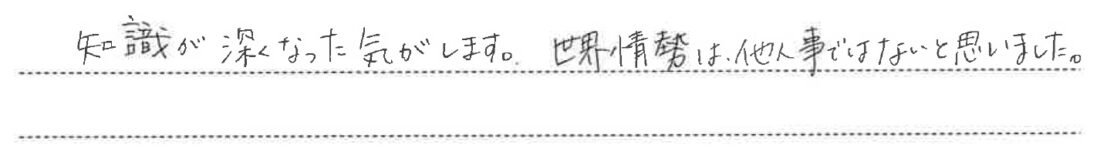 知識が深くなった気がします。世界情勢は、他人事ではないと思いました。